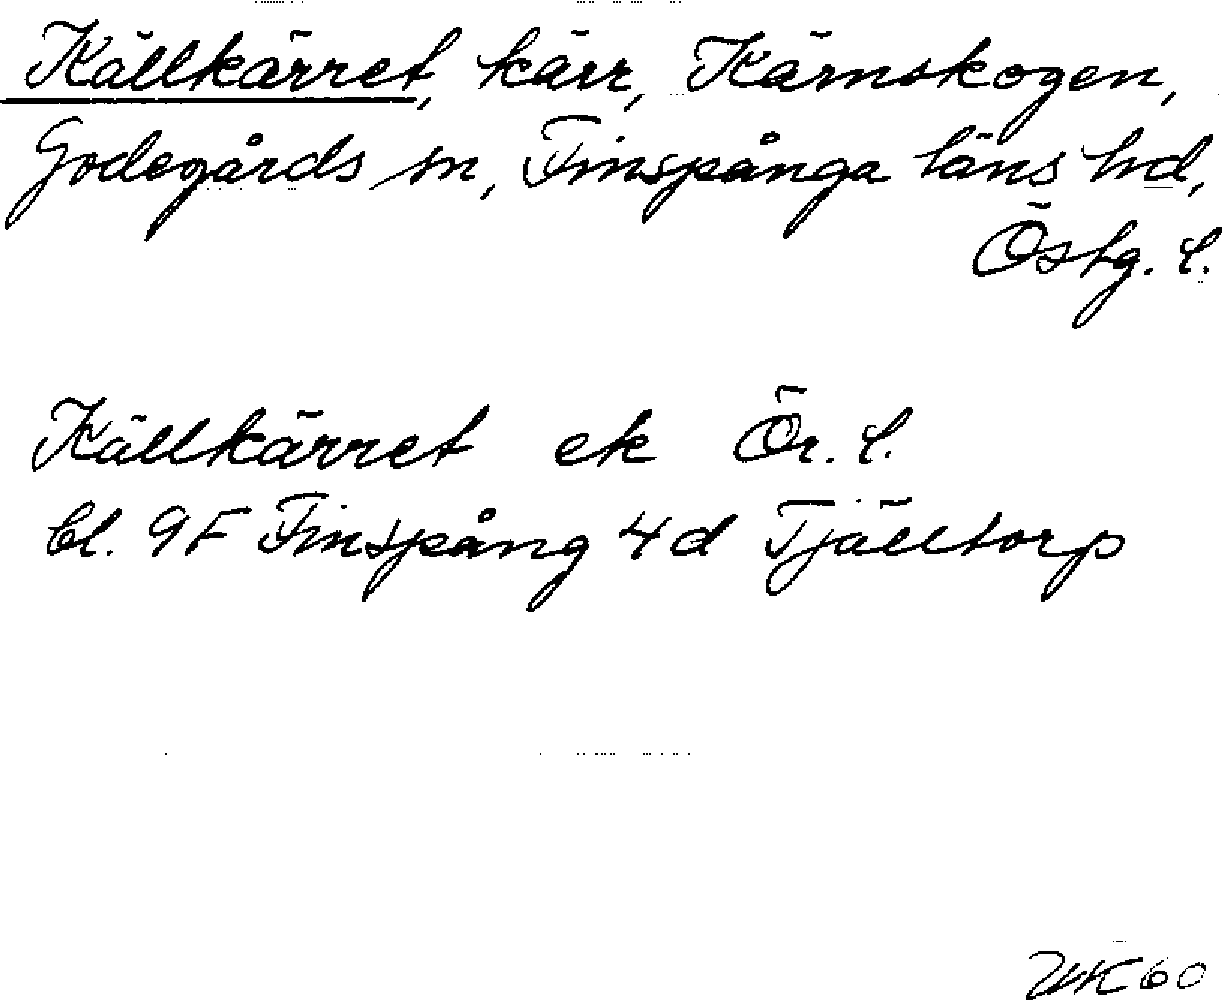 Källkärret, kärr, Kärnskogen,
Godegårds sn, Finspånga läns hd,
Östg. l.
Källkärret ek Ör. l.
bl. 9F Finspång 4d Tjälltorp
60